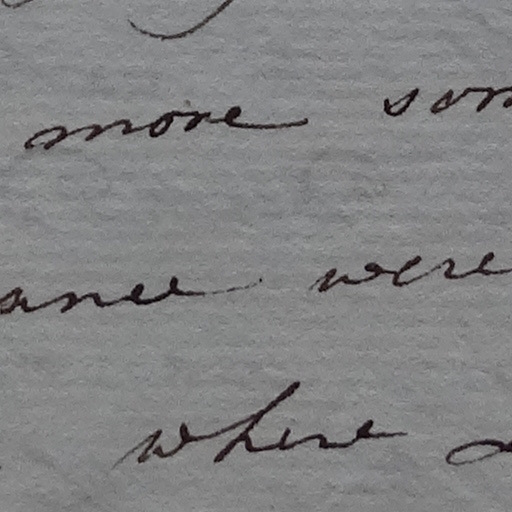 more som
ance were
where